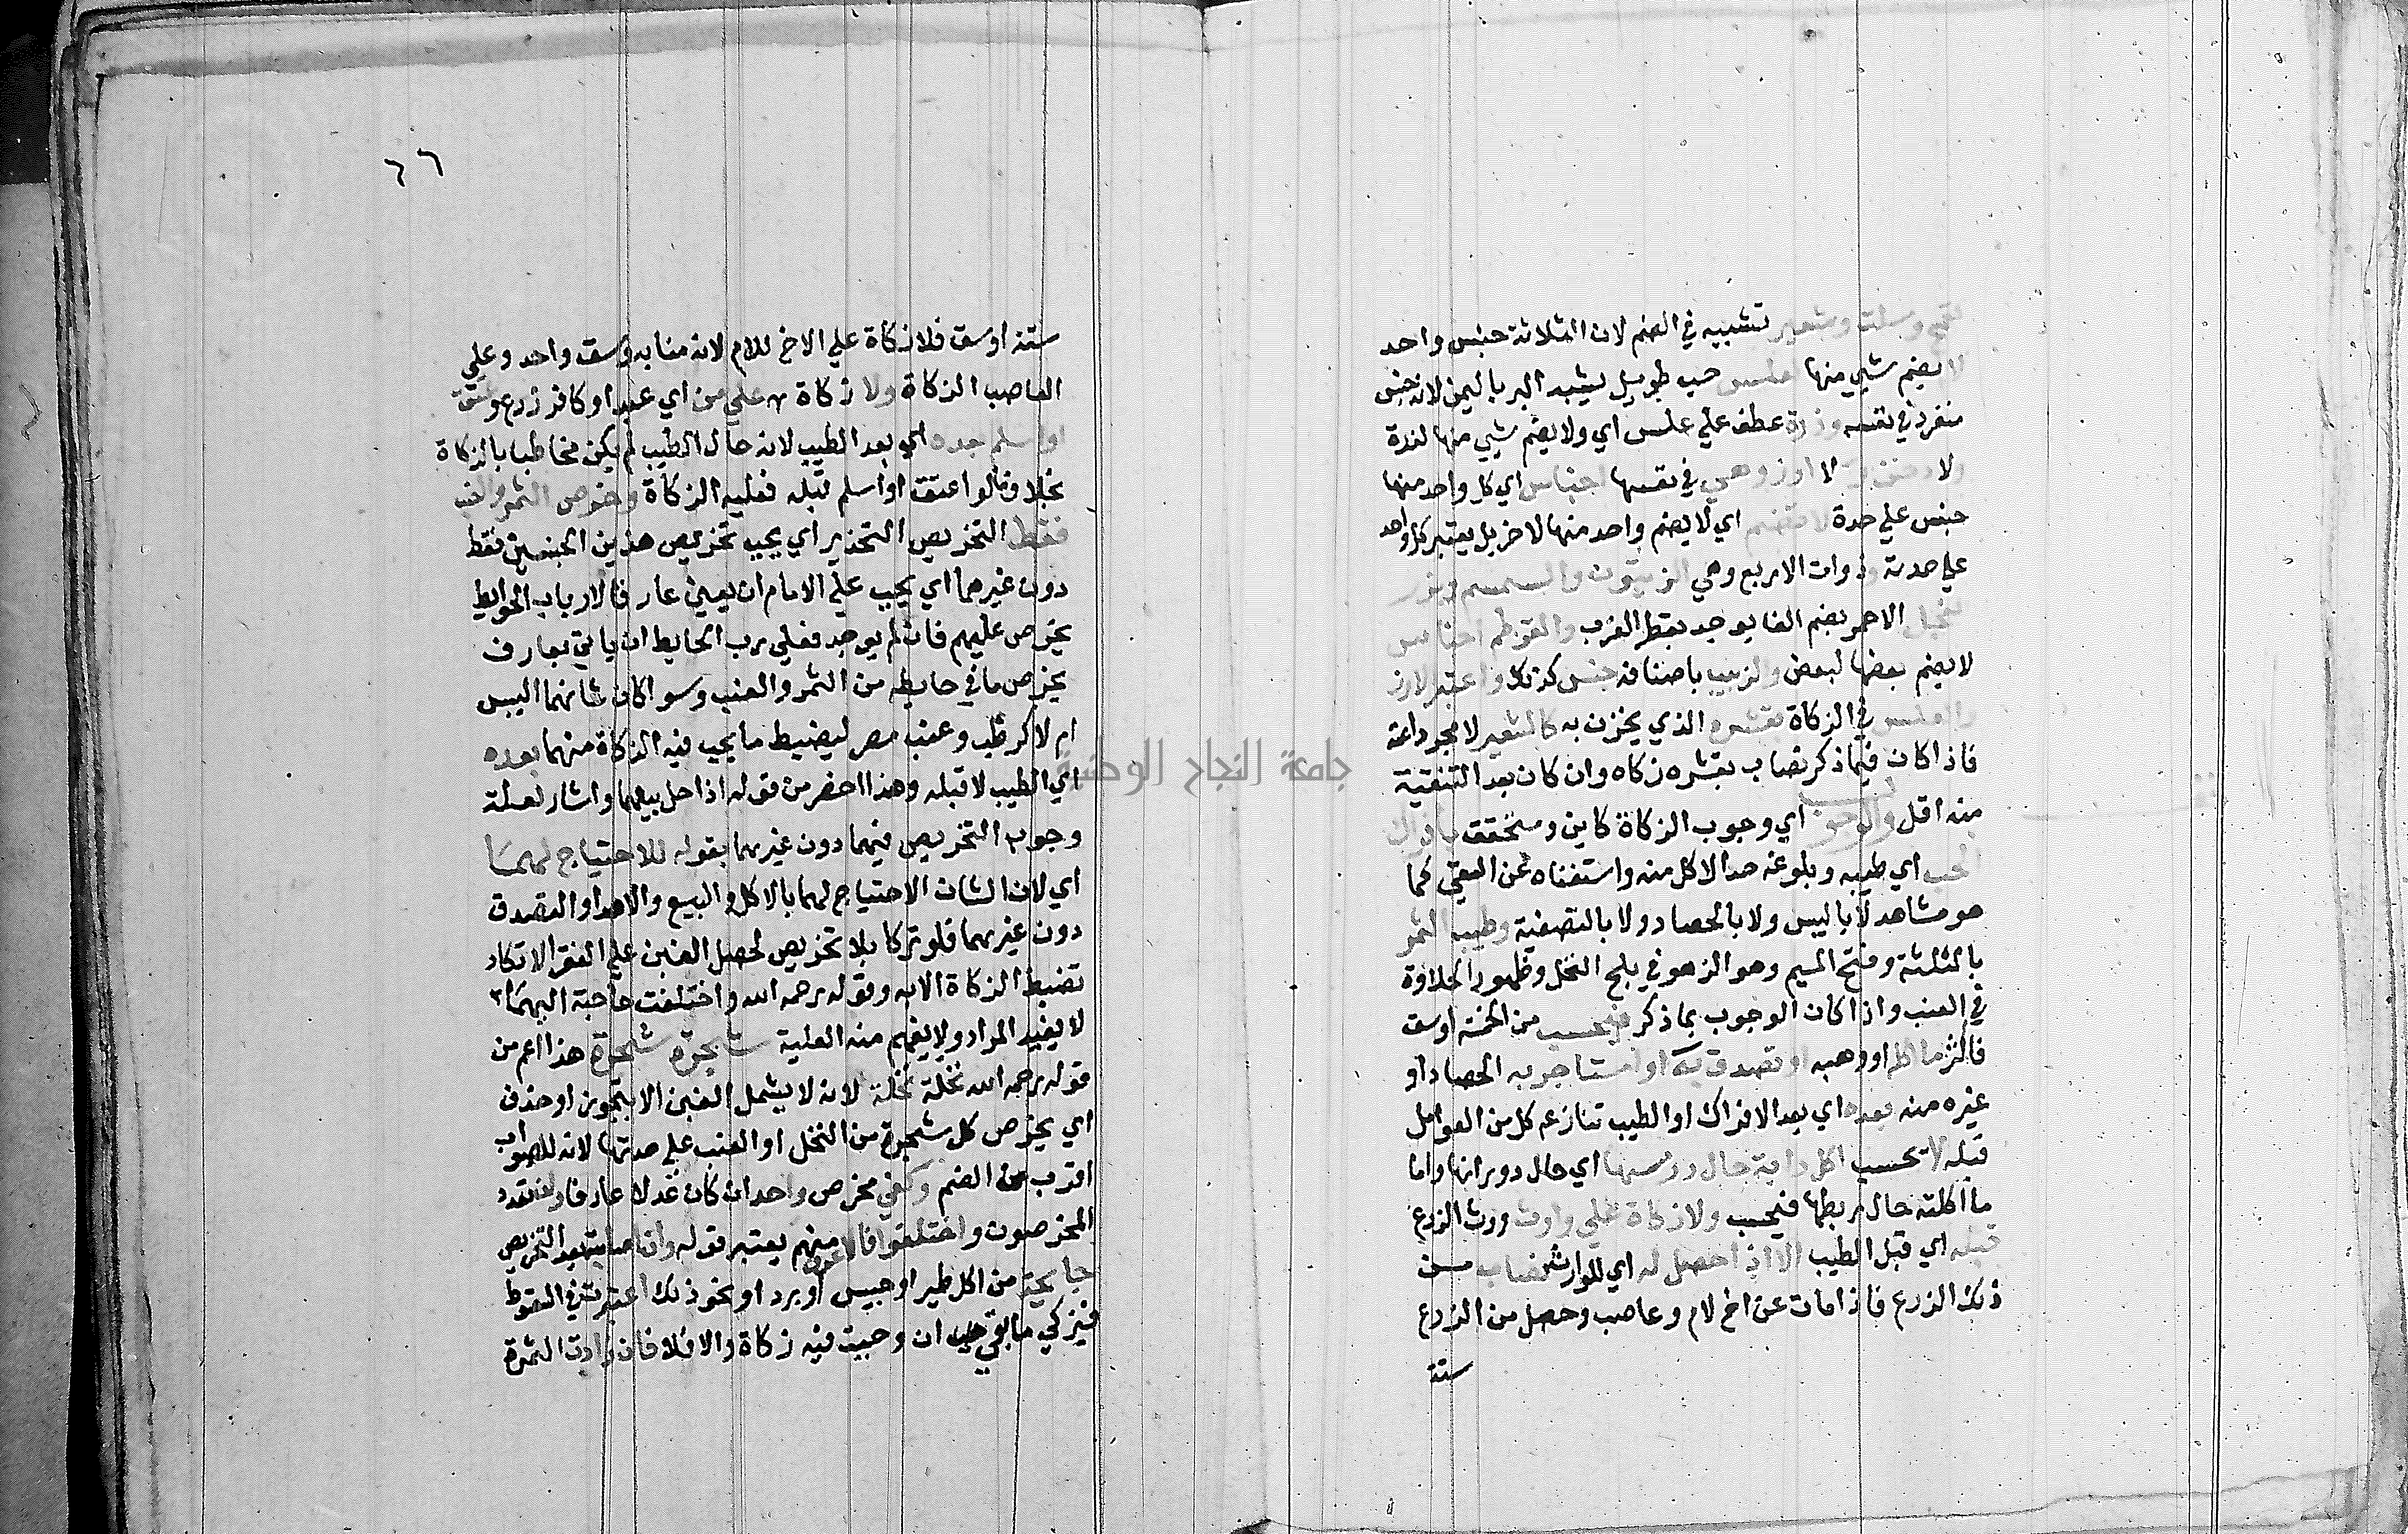 كقمح وسلت وشعير تشبيه في الضم لان الثلاثة جنس واحد
لا يضم شيي منها لعلس حب طويل يشبه البر باليمن لانه جنس
منفرد في نفسه وذرة عطف علي علس اي ولا يضم شيي منها لذرة
ولا دخن ولا ارز وهي في نفسها اجناس اي كل واحد منها
جنس علي حدة لا تضم اي لا يضم واحد منها لاخر بل يعتبر كل واحد
علي حدته وذوات الاربع وهي الزيتون والسمسم وبزر
الفجل الاحمر بضم الفا يوجد بقطر الغرب والقرطم اجناس
لا يضم بعضها لبعض والزبيب باصنافه جنس كذلك واعتبر الارز
والعلس في الزكاة بقشره الذي يخزن به كالشعير لا مجردا عنه
فاذا كان فيما ذكر نصاب بقشره زكاه وان كان بعد التنقية
منه اقل والوجوب اي وجوب الزكاة كاين ومتحقق بافراك
الحب اي طيبه وبلوغه حد الاكل منه واستغناه عن السقي كما
هو مشاهد لا باليبس ولا بالحصاد ولا بالتصفية وطيب الثمر
بالمثلثة وفتح الميم وهو الزهو في بلح النخل وظهور الحلاوة
في العنب واذا كان الوجوب بما ذكر فيحسب من الخمسة اوسق
فاكثر ما اكله او وهبه او تصدق به او استاجر به الحصاد او
غيره منه بعده اي بعد الافراك او الطيب تنازعه كل من العوامل
قبله لا تحسب اكل دابة حال درسها اي حال دورانها واما
ما اكلته حال ربطها فيحسب ولا زكاة علي وارث ورث الزرع
قبله اي قبل الطيب الا اذا حصل له اي للوارث نصاب من
ذلك الزرع فاذا مات عن اخ لام وعاصب وحصل من الزرع
ستة
٦٦
ستة اوسق فلا زكاة علي الاخ للام لانه منابه وسق واحد وعلي
العاصب الزكاة ولا زكاة علي من اي عبد او كافر زرع وعتق
او اسلم بعده اي بعد الطيب لانه حال الطيب لم يكن مخاطبا بالزكاة
بخلاف ما لو اعتق او اسلم قبله فعليه الزكاة وخرص الثمر والعنب
فقط التخريص التحذير اي يجب تخريص هذين الجنسين فقط
دون غيرهما اي يجب علي الامام ان يعين عارفا لارباب الحوايط
يخرص عليهم فان لم يوجد فعلي رب الحايط ان ياتي بعارف
يخرص ما في حايطه من الثمر والعنب وسوا كان شانهما اليبس
ام لا كرطب وعنب مصر ليضبط ما يجب فيه الزكاة منهما بعده
اي الطيب لا قبله وهذا اخصر من قوله اذا حل بيعهما واشار لعلة
وجوب التخريص فيهما دون غيرهما بقوله للاحتياج لهما
اي لان الشان الاحتياج لهما بالاكل والبيع والاهدا والتصدق
دون غيرهما فلو تركا بلا تخريص لحصل الغبن علي الفقرا لا تكاد
تضبط الزكاة الا به وقوله رحمه الله واختلفت حاجة اليهما
لا يفيد المراد ولا يفهم منه العلية شجرة شجرة هذا اعم من
قوله رحمه الله نخلة نخلة لانه لا يشمل العنب الا بتجوز او حذف
اي يخرص كل شجرة من النخل او العنب علي حدتها لانه للصواب
اقرب من الضم وكفي مخرص واحد ان كان عدلا عارفا ولو تعدد
المخرصون واختلفوا فالاعرف منهم يعتبر قوله وان اصابته بعد التخريص
جايحة من اكل طير او جيش او برد او نحو ذلك اعتبرت في السقوط
فيزكي ما بقي ان وجبت فيه زكاة والا فلا فان زادت الثمرة
جامعة النجاح الوطنية